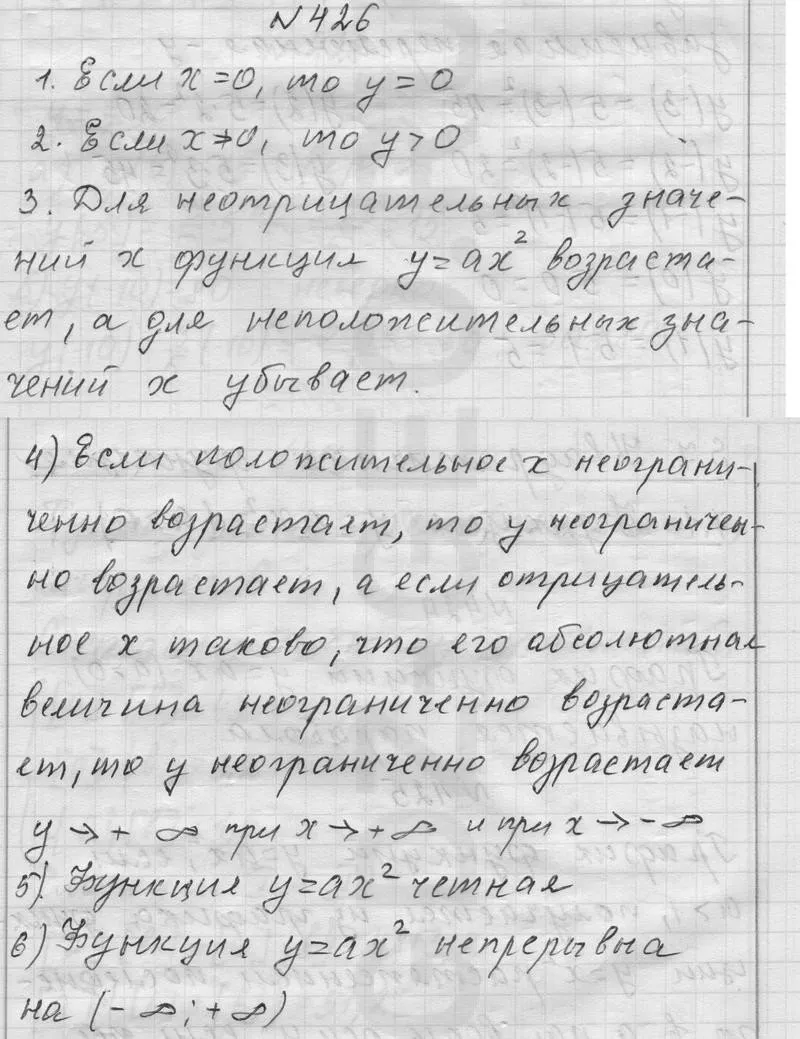 №426
1. Если x=0, то y=0
2. Если x≠0, то y>0
3. Для неотрицательных значе-
ний x функция y=ax² возраста-
ет, а для неположительных зна-
чений x убывает.
4) Если положительное x неограни-
ченно возрастает, то y неограничен-
но возрастает, а если отрицатель-
ное x таково, что его абсолютная
величина неограниченно возраста-
ет, то y неограниченно возрастает
y → + ∞ при x → + ∞ и при x → - ∞
5). Функция y=ax² четная
6) Функция y=ax² непрерывна
на (- ∞; + ∞)